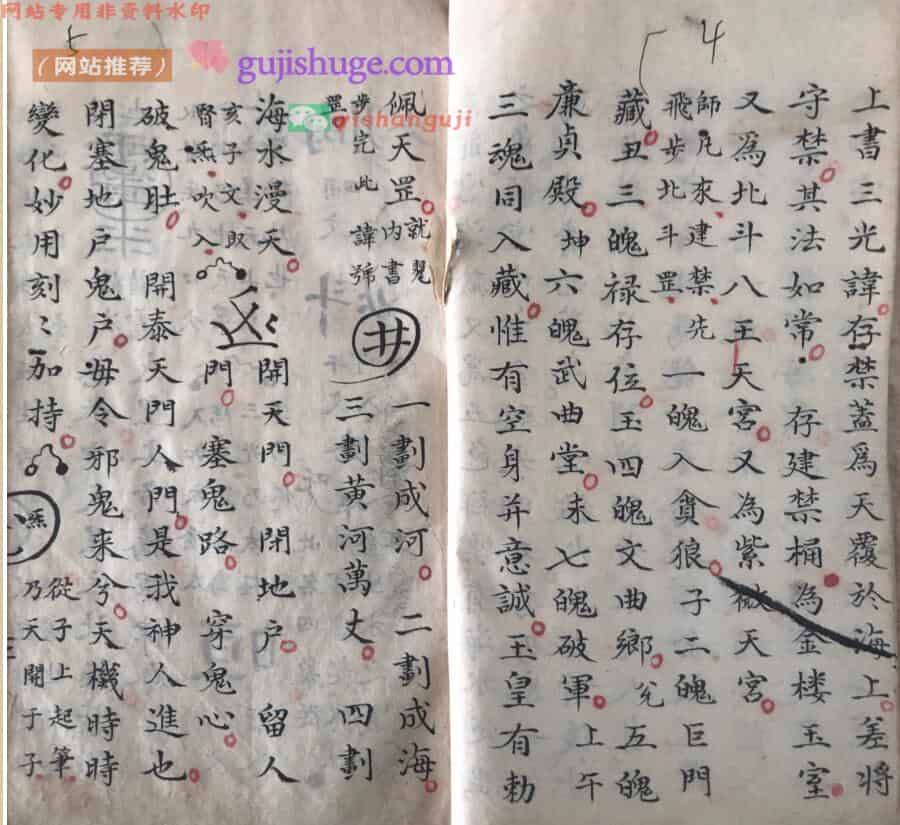 网站专用非资料水印
（网站推荐）
gujishuge.com
yishanguji
4
上書三光諱存禁蓋爲天覆於海上差将
守禁其法如常存建禁桶為金楼玉室
又爲北斗八王天宮又為紫微天宮
師凡來建禁先
飛步北斗罡
一魄入貪狼子二魄巨門
藏丑三魄禄存位玉四魄文曲鄉兌五魄
廉貞殿坤六魄武曲堂未七魄破軍上午
三魂同入藏惟有空身并意誠玉皇有勅
5
佩天罡就凳内書
步完此諱號
罡
一劃成河二劃成海
井三劃黄河萬丈四劃
海水漫天開天門閉地戶留人
亥子文取
腎炁吹入
門塞鬼路穿鬼心
破鬼肚開泰天門人門是我神人進也
閉塞地戶鬼户毋令邪鬼来兮天機時時
變化妙用刻〻加持
炁
從子上起筆
乃天開于子